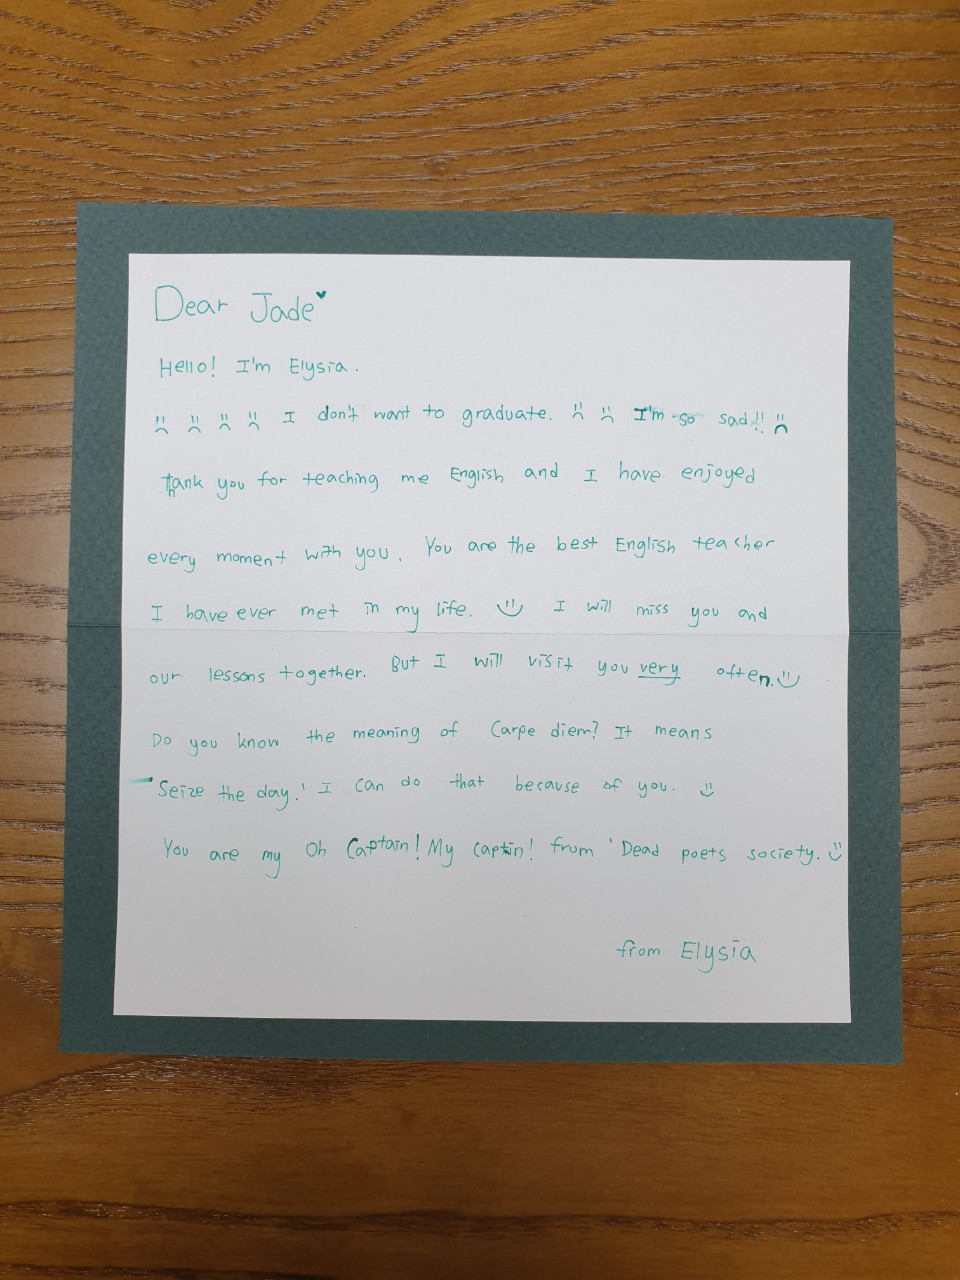 Dear Jade♥
Hello! I'm Elysia.
:( :( :( :( I don't want to graduate. :( :( I'm so sad!! :(
Thank you for teaching me English and I have enjoyed
every moment with you. You are the best English teacher
I have ever met in my life. :) I will miss you and
our lessons together. But I will visit you very often. :)
Do you know the meaning of Carpe diem? It means
'Seize the day.' I can do that because of you. :)
You are my Oh Captain! My captin! from 'Dead poets society. :)
from Elysia